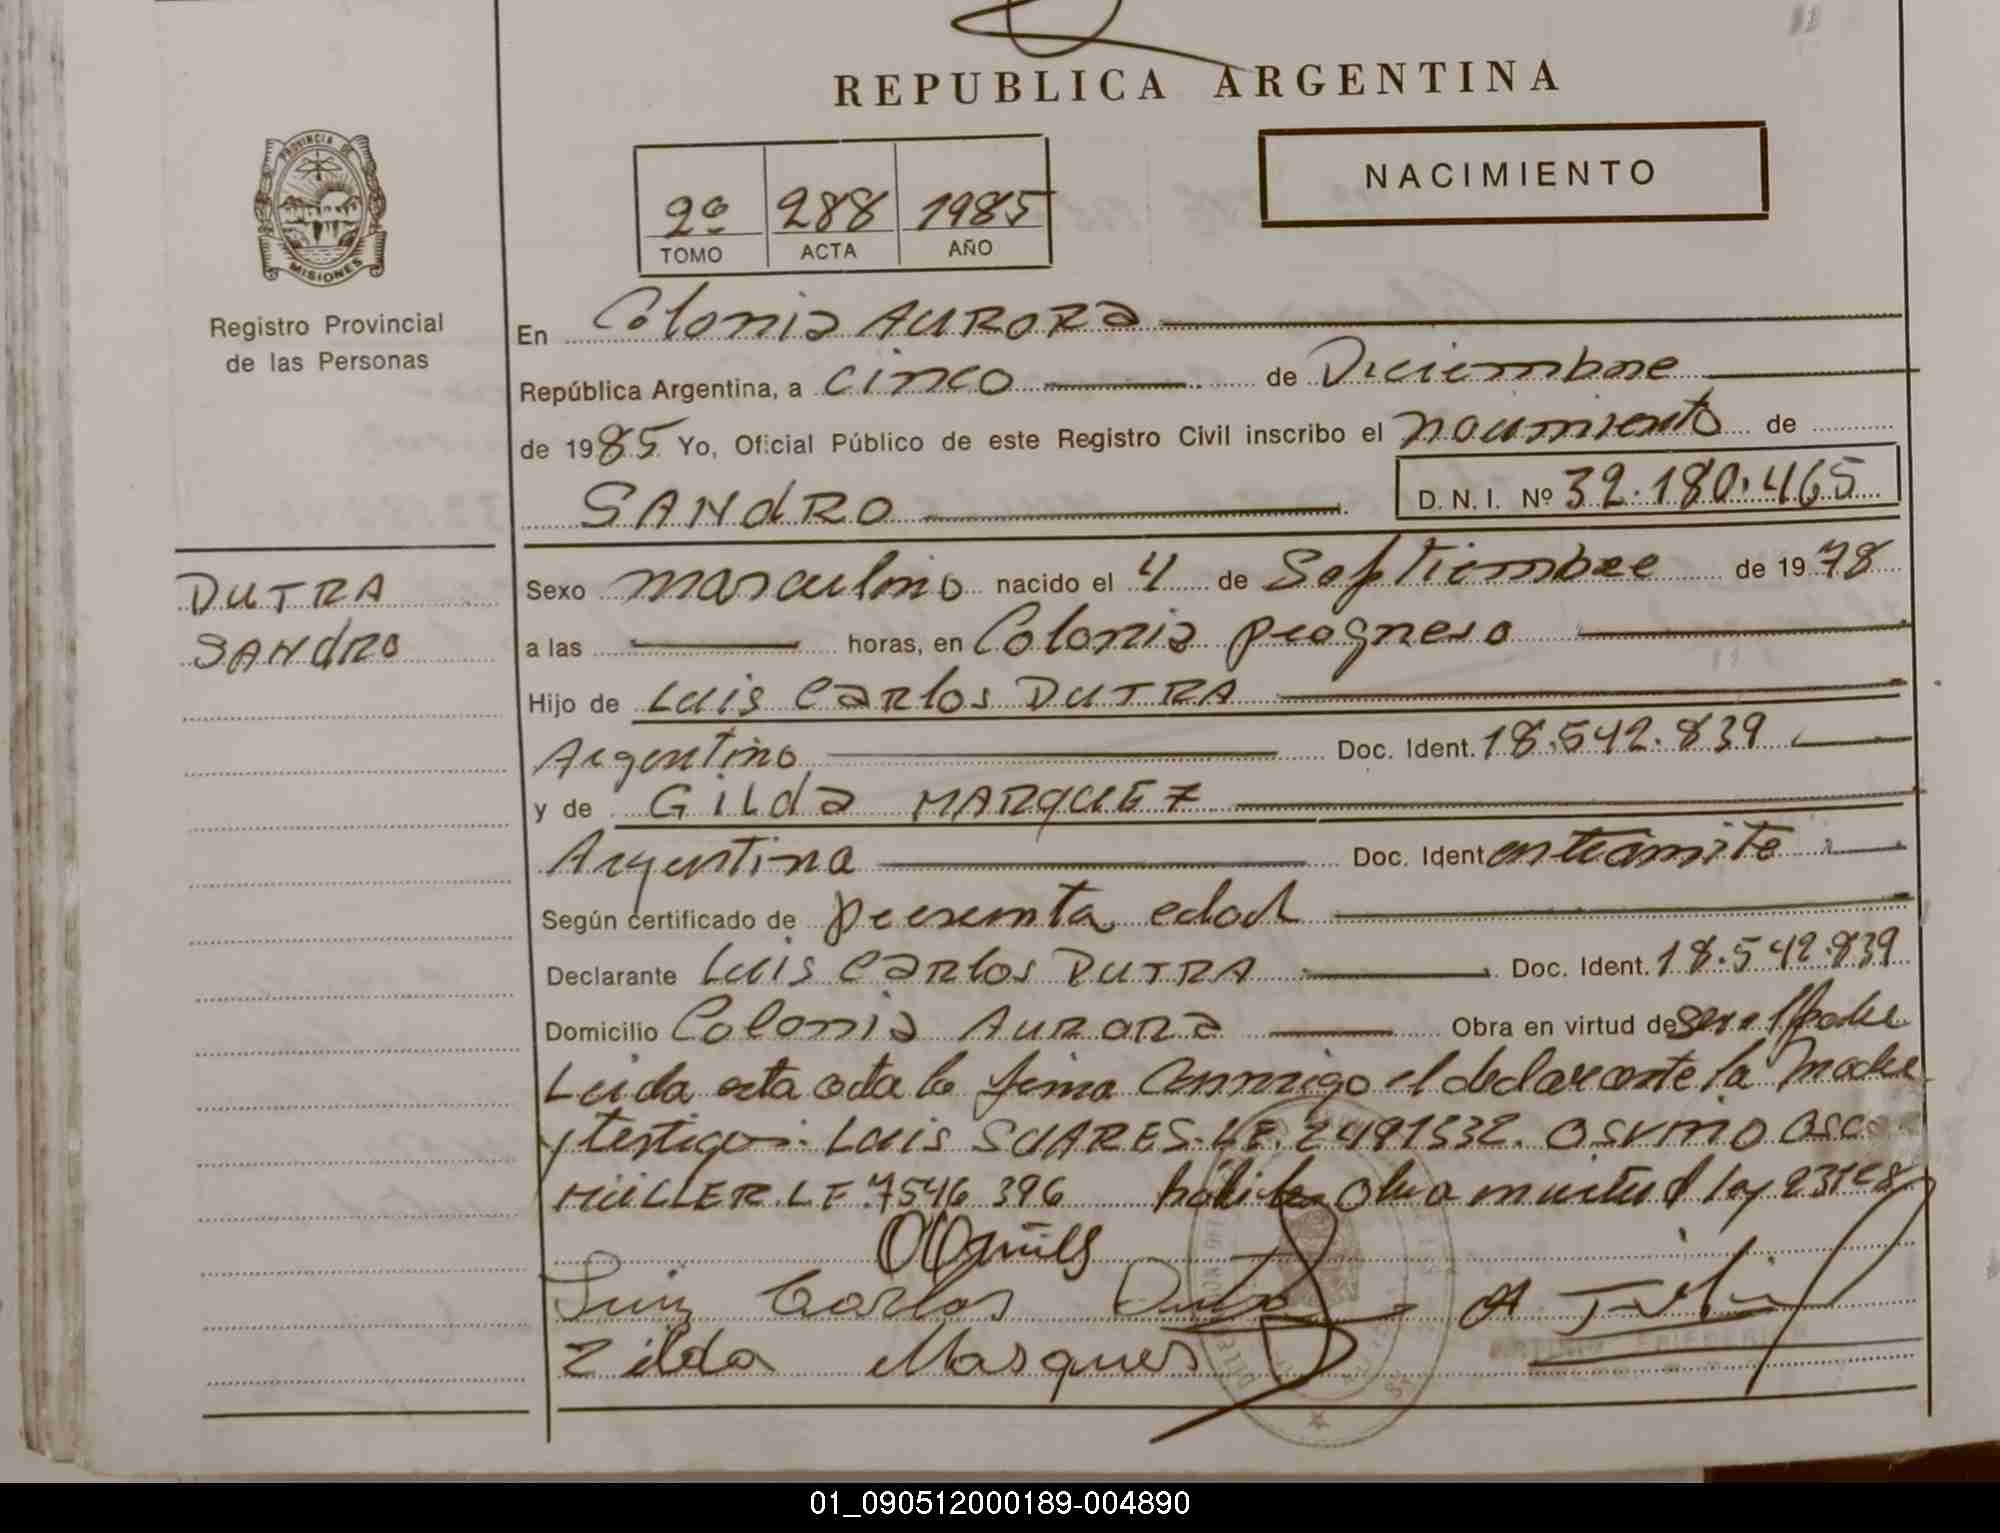 REPUBLICA ARGENTINA
PROVINCIA DE
MISIONES
Registro Provincial
de las Personas
2º 288 1985
TOMO ACTA AÑO
NACIMIENTO
En Colonia AURORA
República Argentina, a cinco de Diciembre
de 1985 Yo, Oficial Público de este Registro Civil inscribo el nacimiento de
SANdRO D. N. I. Nº 32.180.465
DUTRA
SANdRO
Sexo masculino nacido el 4 de Septiembre de 1978
a las horas, en Colonia progreso
Hijo de Luis Carlos DUTRA
Argentino Doc. Ident. 18.542.839
y de GiLda MARQUEZ
Argentina Doc. Ident en tramite
Según certificado de presunta edad
Declarante Luis Carlos DUTRA Doc. Ident. 18.542.839
Domicilio Colonia Aurora Obra en virtud de ser el padre
Leida esta acta la firma conmigo el declarante la madre
y testigos: Luis SUARES. LE. 2491532. OSVINO OSC
MüLLER. LE 7546 396 habiles Obra en virtud ley 23128
Luiz Carlos Dutra
Zilda Marques
01_090512000189-004890